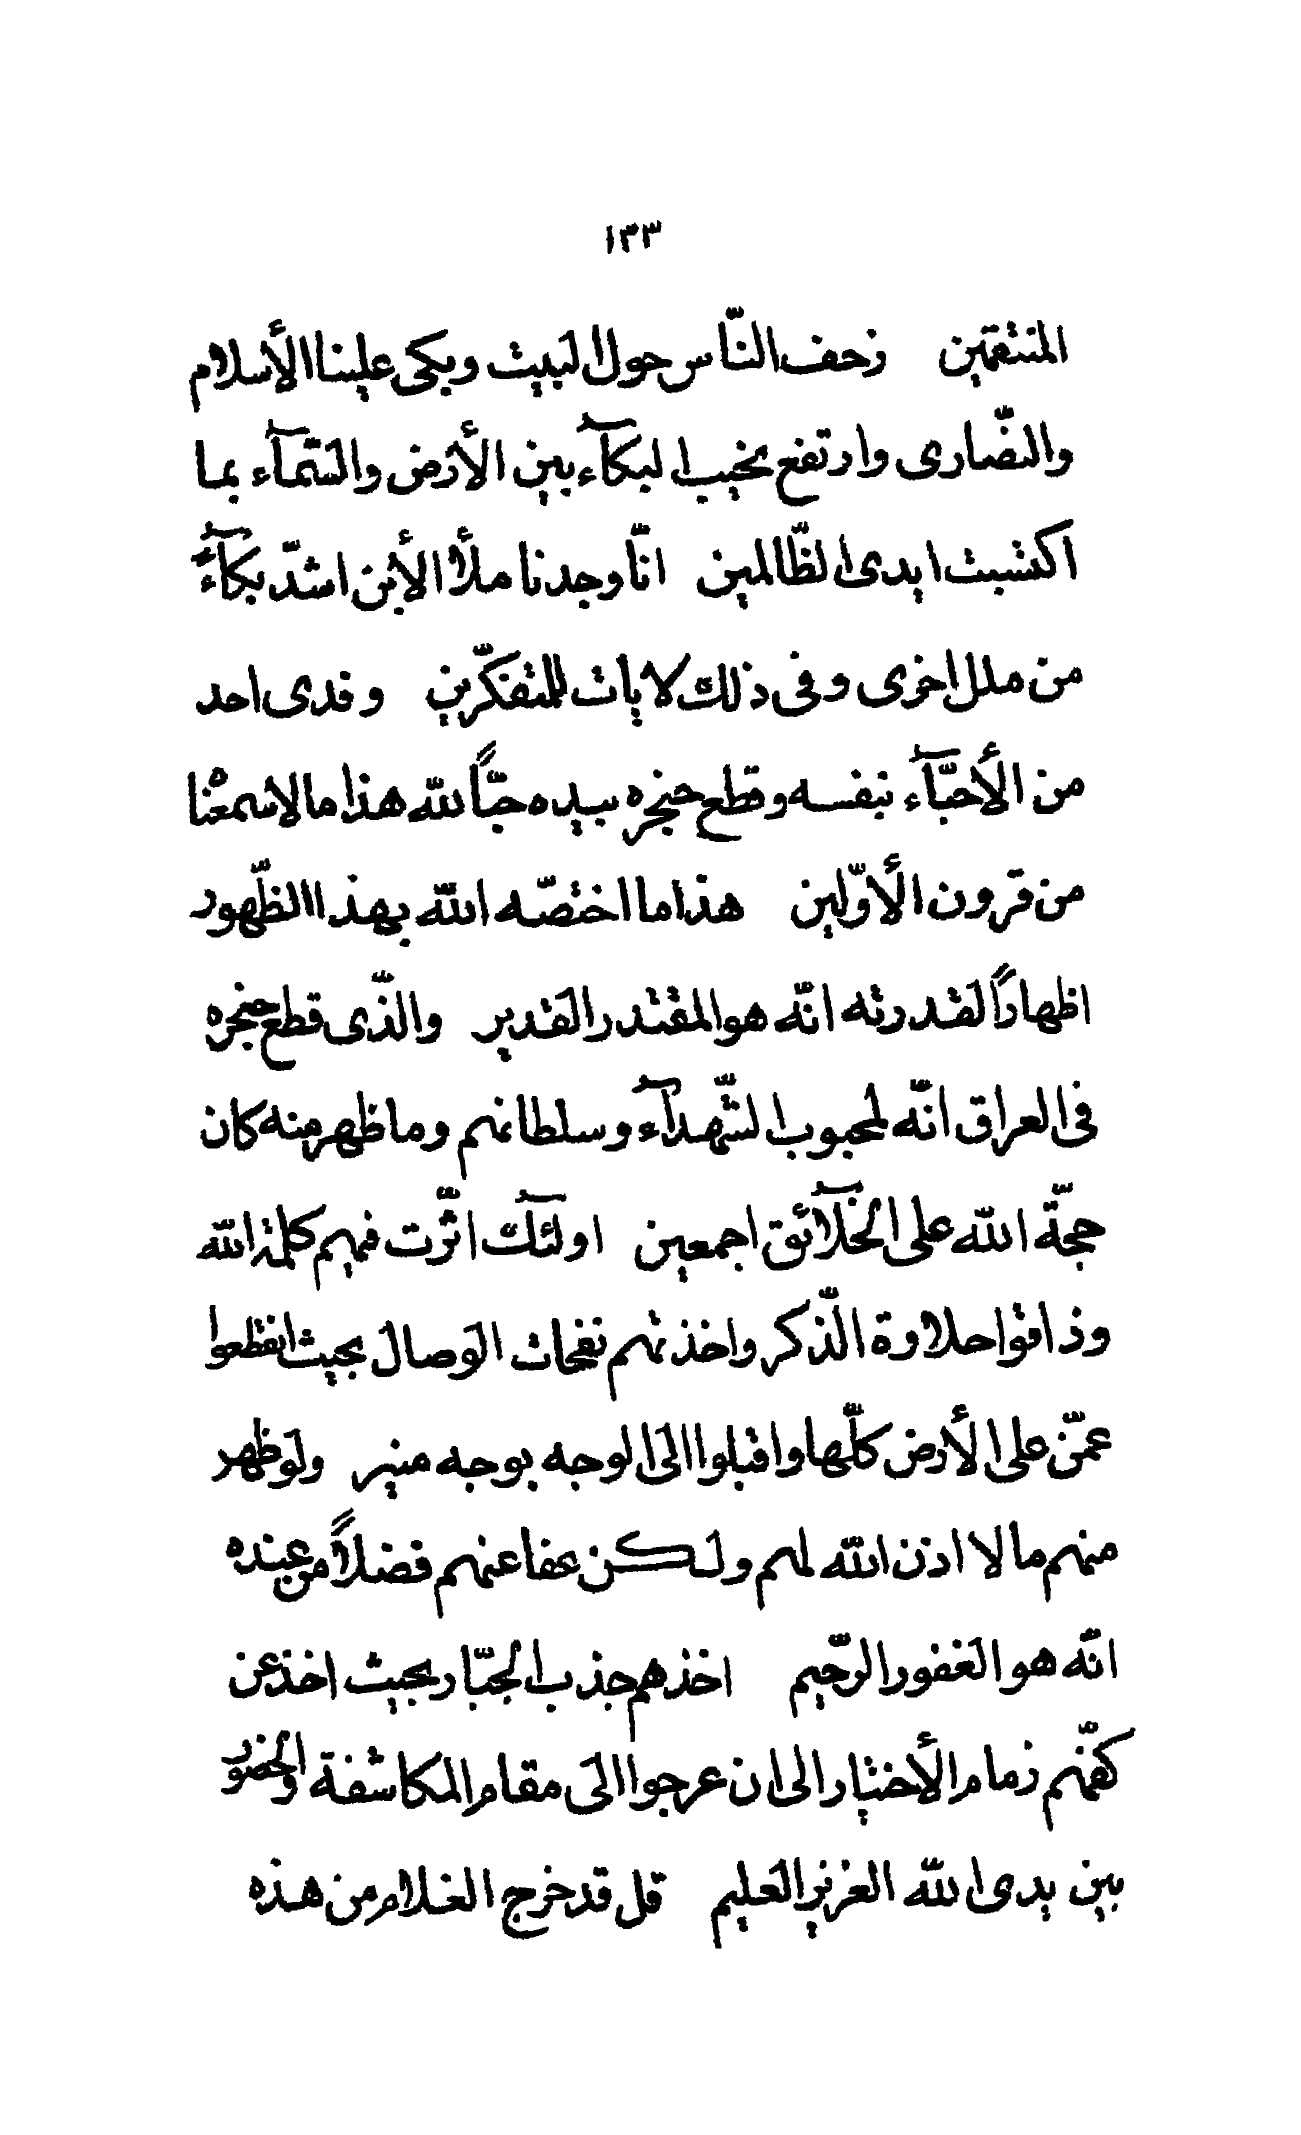 ١٣٣
المنتقمين زحف النّاس حول البيت وبكى علينا الأسلام
والنّصارى وارتفع نحيب البكآء بين الأرض والسّمآء بما
اكتسبت ايدى الظّالمين انّا وجدنا ملأ الأبن اشدّ بكآءً
من ملل اخرى وفى ذلك لايات للمتفكّرين وفدى احد
من الأحبّآء بنفسه وقطع حنجره بيده حبّاً لله هذا ما لا سمعنا
من قرون الأوّلين هذا ما اختصّه الله بهذا الظّهور
اظهاراً لقدرته انّه هو المقتدر القدير والّذى قطع حنجره
فى العراق انّه لمحبوب الشّهدآء وسلطانهم وما ظهر منه كان
حجّة الله على الخلآئق اجمعين اولئك اثّرت فيهم كلمة الله
وذاقوا حلاوة الذّكر واخذتهم نفحات الوصال بحيث انقطعوا
عمّن على الأرض كلّها واقبلوا الى الوجه بوجه منير ولو ظهر
منهم ما لا اذن الله لهم ولكن عفا عنهم فضلاً من عنده
انّه هو الغفور الرّحيم اخذهم جذب الجبّار بحيث اخذ عن
كفّهم زمام الأختيار الى ان عرجوا الى مقام المكاشفة والحضور
بين يدى الله العزيز العليم قل قد خرج الغلام من هذه